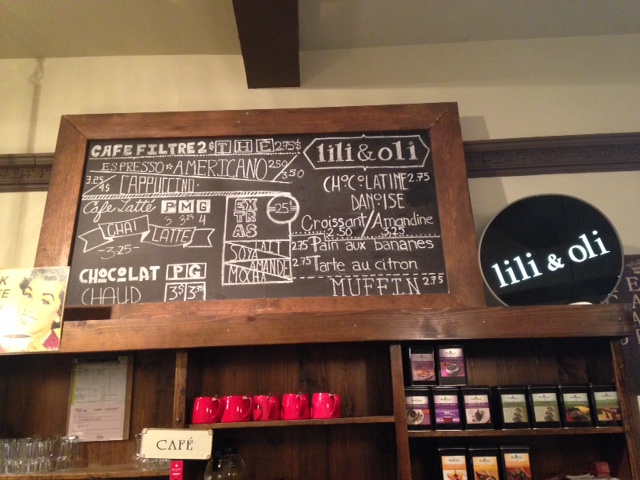 CAFE FILTRE 2$ THÉ 2.75$
ESPRESSO ☆ AMERICANO 2.50/3.50
3.25/4$ CAPPUCCINO
Café Latté P M G
3.25 4
CHAI LATTE
3.25
CHOCOLAT P G
CHAUD 3$ 3.75
EXTRAS
=25=
SOYA LAIT
AMANDE
MOCHA
lili & oli
CHOCOLATINE 2.75
DANOISE
Croissant/Amandine
2.50 3.25
2.75 Pain aux bananes
2.75 Tarte au citron
MUFFIN 2.75
lili & oli
CAFÉ